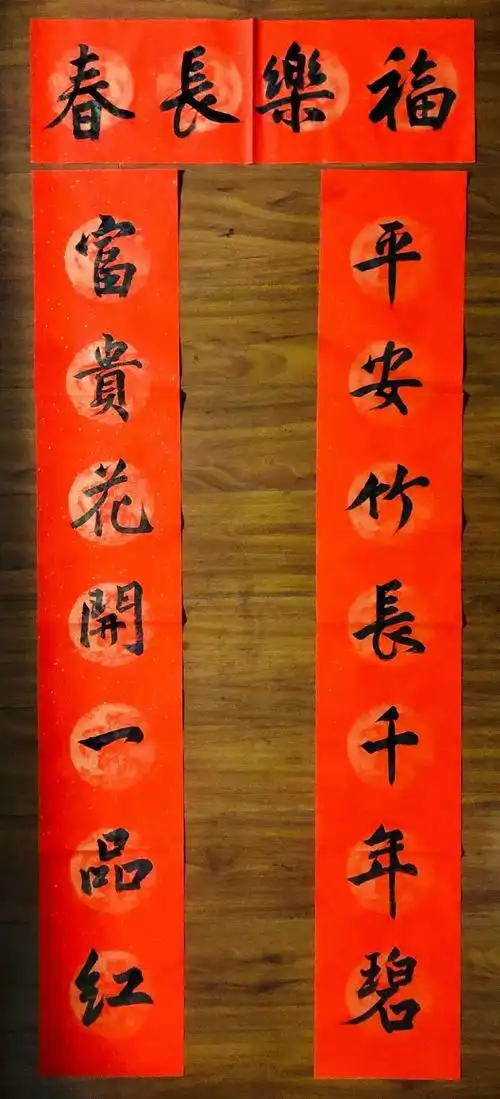 福樂長春
平安竹長千年碧
富貴花開一品红